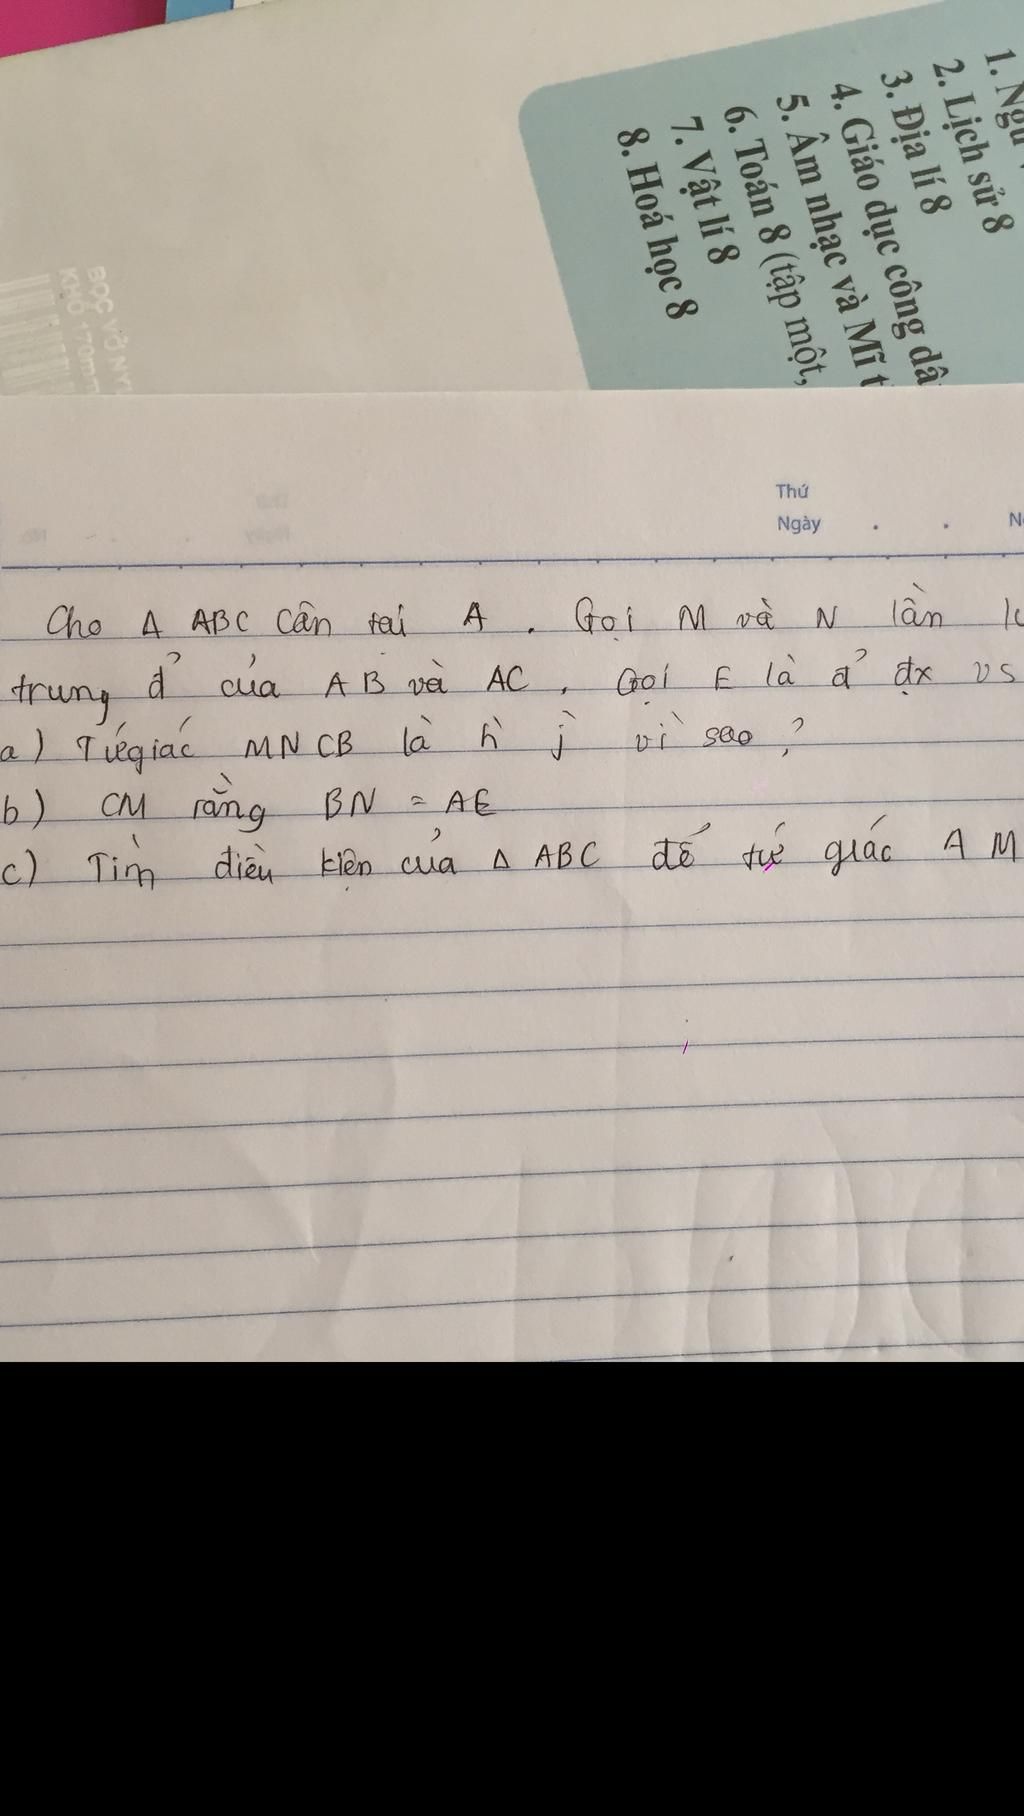 1. Ngữ
2. Lịch sử 8
3. Địa lí 8
4. Giáo dục công dâ
5. Âm nhạc và Mĩ t
6. Toán 8 (tập một,
7. Vật lí 8
8. Hoá học 8
BỌC VỞ NY
KHỔ 170m
Thứ
Ngày . .
Cho Δ ABC Cân tại A . Gọi M và N lần lư
trung đ' của AB và AC . Gọi E là đ' đx vs
a) Tứ giác MNCB là h̀ j̀ vì sao ?
b) CM rằng BN = AE
c) Tìm điều kiện của Δ ABC để tứ giác AM